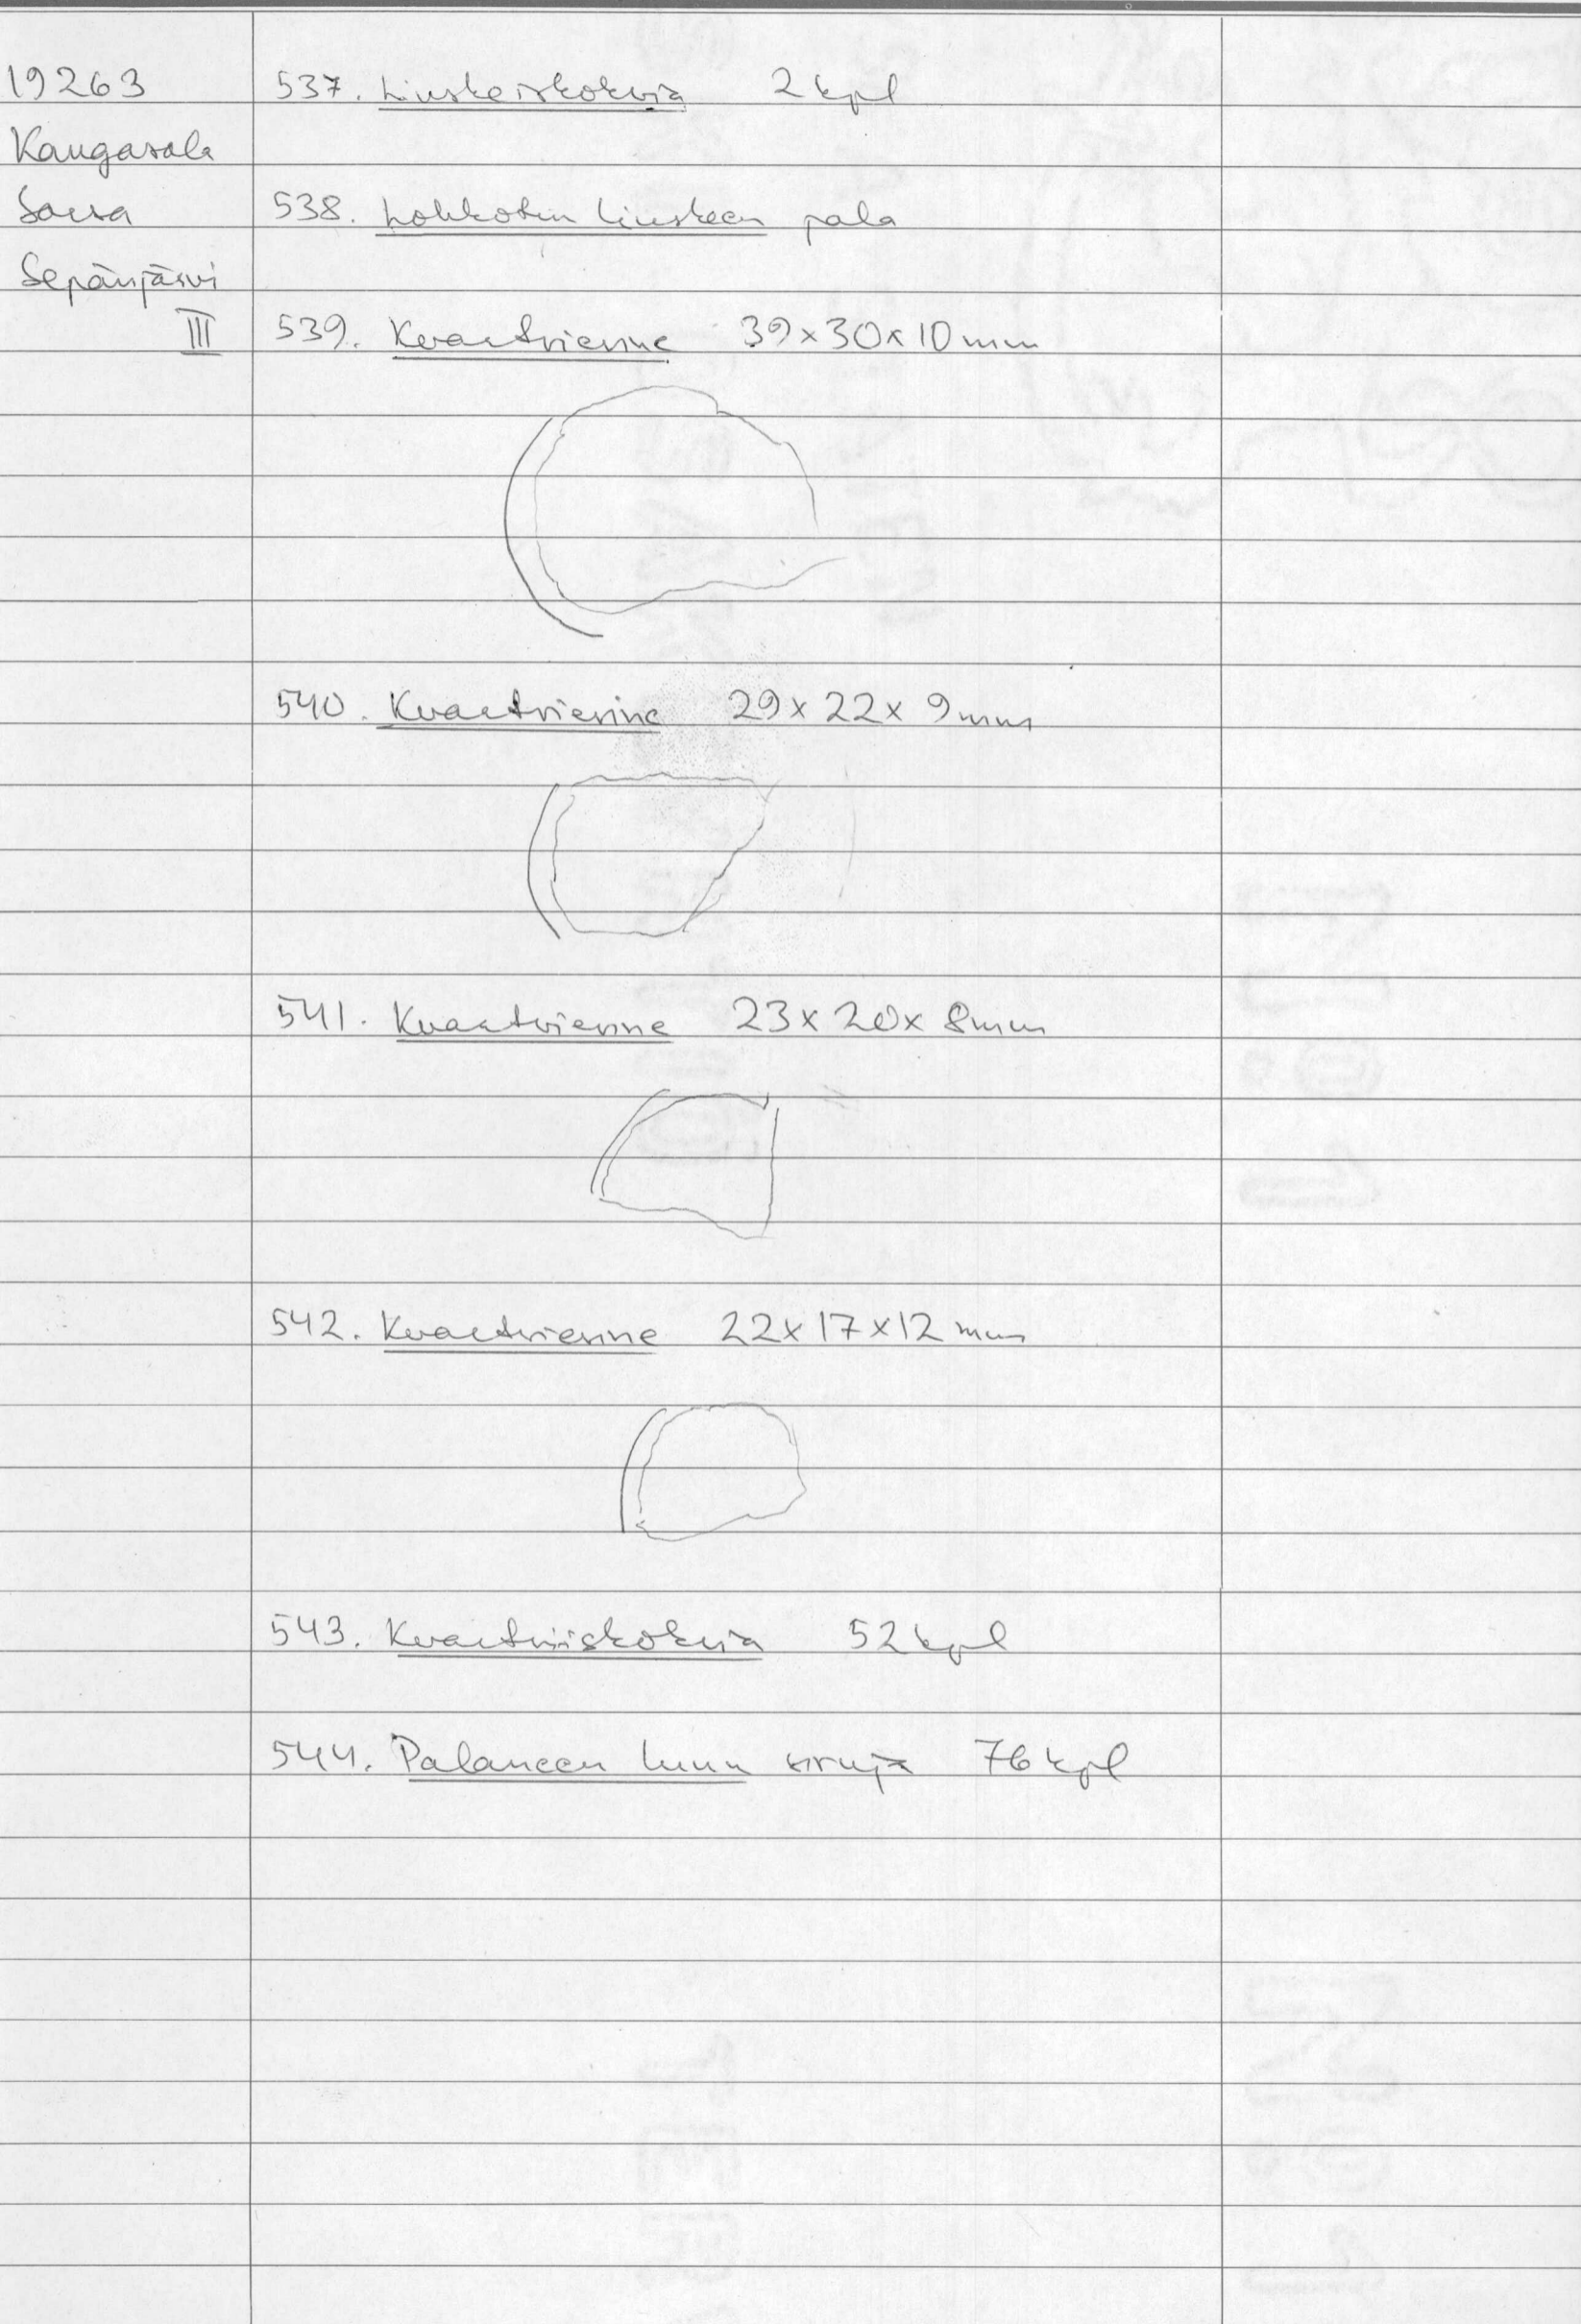 19263
Kangasala
Sarsa
Sepänjärvi
III
537. Liuskeiskoksia 2 kpl
538. Lohkotun liuskeen pala
539. Kvartsiesine 39 x 30 x 10 mm
540. Kvartsiesine 29 x 22 x 9 mm
541. Kvartsiesine 23 x 20 x 8 mm
542. Kvartsiesine 22 x 17 x 12 mm
543. Kvartsiiskoksia 52 kpl
544. Palaneen luun siruja 76 kpl